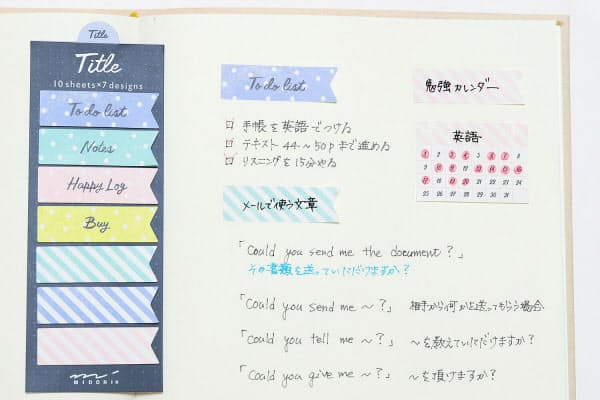 Title
Title
10 sheets×7 designs
To do list
Notes
Happy Log
Buy
MIDORI
To do list
手帳を英語でつける
テキスト 44~50pまで進める
リスニングを15分やる
メールで使う文章
「Could you send me the document?」
その書類を送っていただけますか?
「Could you send me ~?」 相手から何かを送ってもらう場合
「Could you tell me ~?」 ~を教えていただけますか?
「Could you give me ~?」 ~を頂けますか?
勉強カレンダー
英語
1 2 3 4 5 6 7 8
9 10 11 12 13 14 15 16
17 18 19 20 21 22 23 24
25 26 27 28 29 30 31